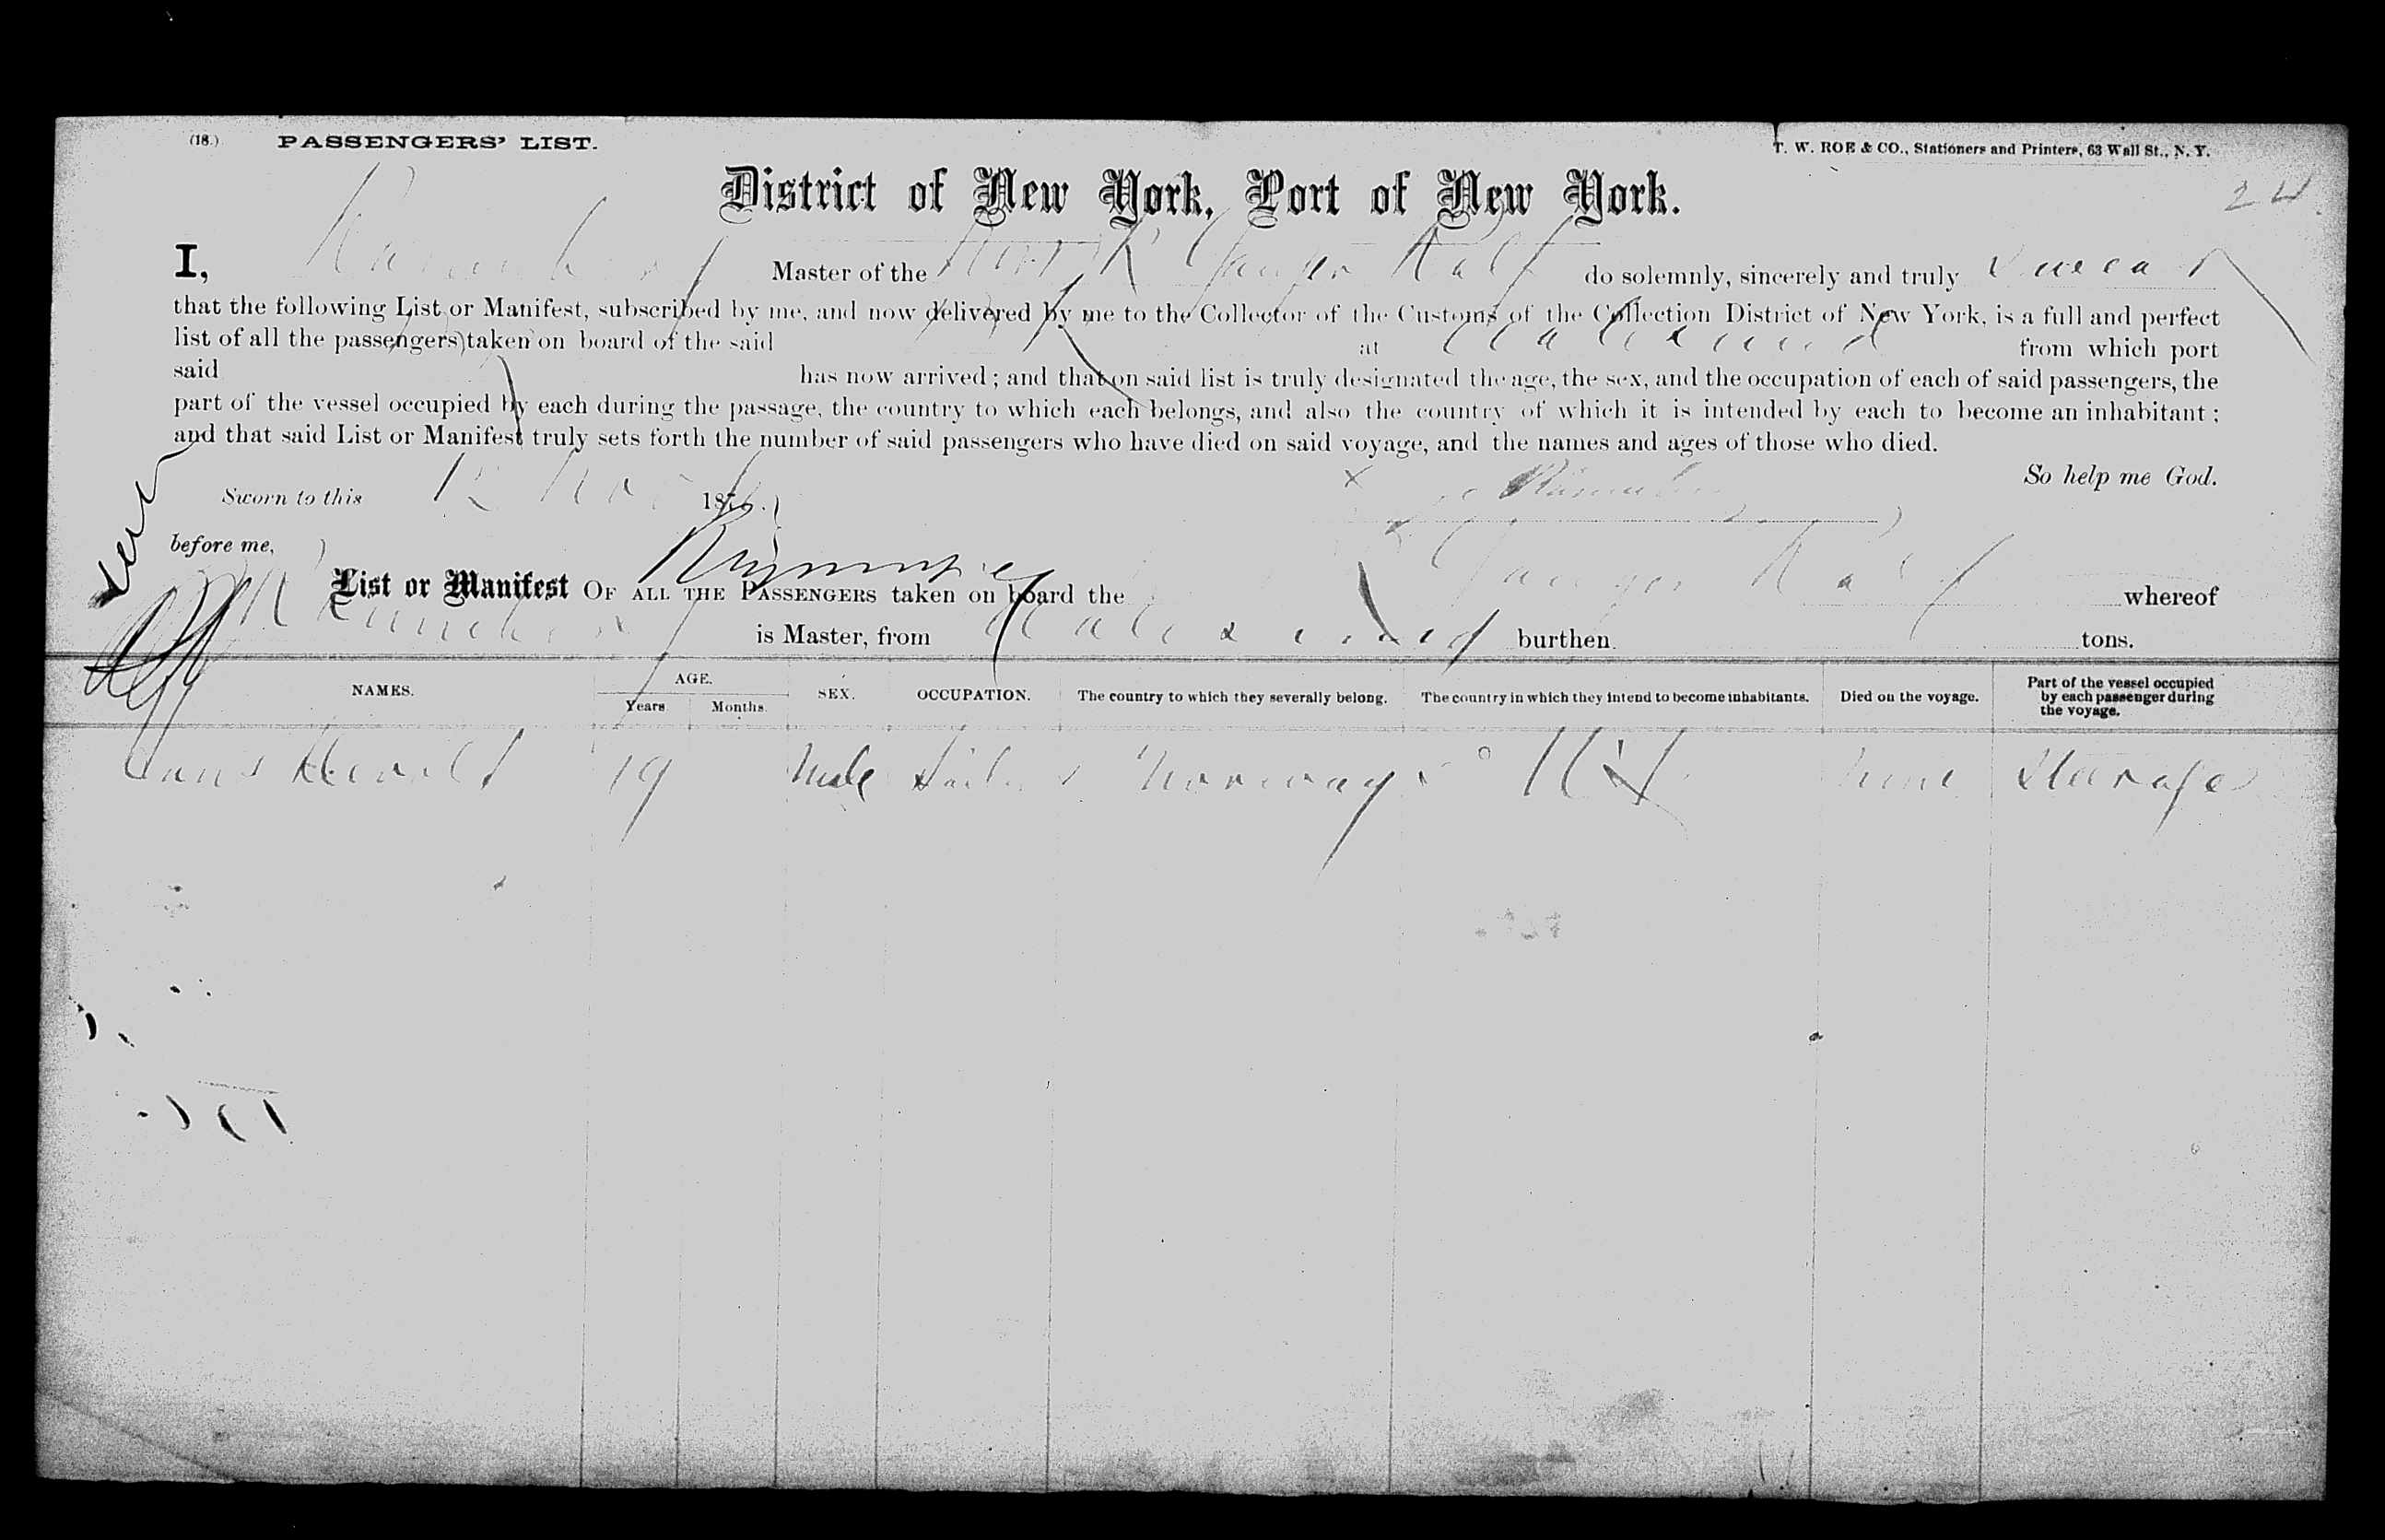 (18.) PASSENGERS' LIST. T. W. ROE & CO., Stationers and Printers, 63 Wall St., N. Y.
24
District of New York, Port of New York.
I, Master of the do solemnly, sincerely and truly swear
that the following List or Manifest, subscribed by me, and now delivered by me to the Collector of the Customs of the Collection District of New York, is a full and perfect
list of all the passengers taken on board of the said at from which port
said has now arrived; and that on said list is truly designated the age, the sex, and the occupation of each of said passengers, the
part of the vessel occupied by each during the passage, the country to which each belongs, and also the country of which it is intended by each to become an inhabitant;
and that said List or Manifest truly sets forth the number of said passengers who have died on said voyage, and the names and ages of those who died.
So help me God.
Sworn to this 12 Nov 1876.
before me,
List or Manifest OF ALL THE PASSENGERS taken on board the whereof
is Master, from burthen tons.
NAMES. AGE. SEX. OCCUPATION. The country to which they severally belong. The country in which they intend to become inhabitants. Died on the voyage. Part of the vessel occupied by each passenger during the voyage.
Years. Months.
19 Male Sailor Norway US none Steerage